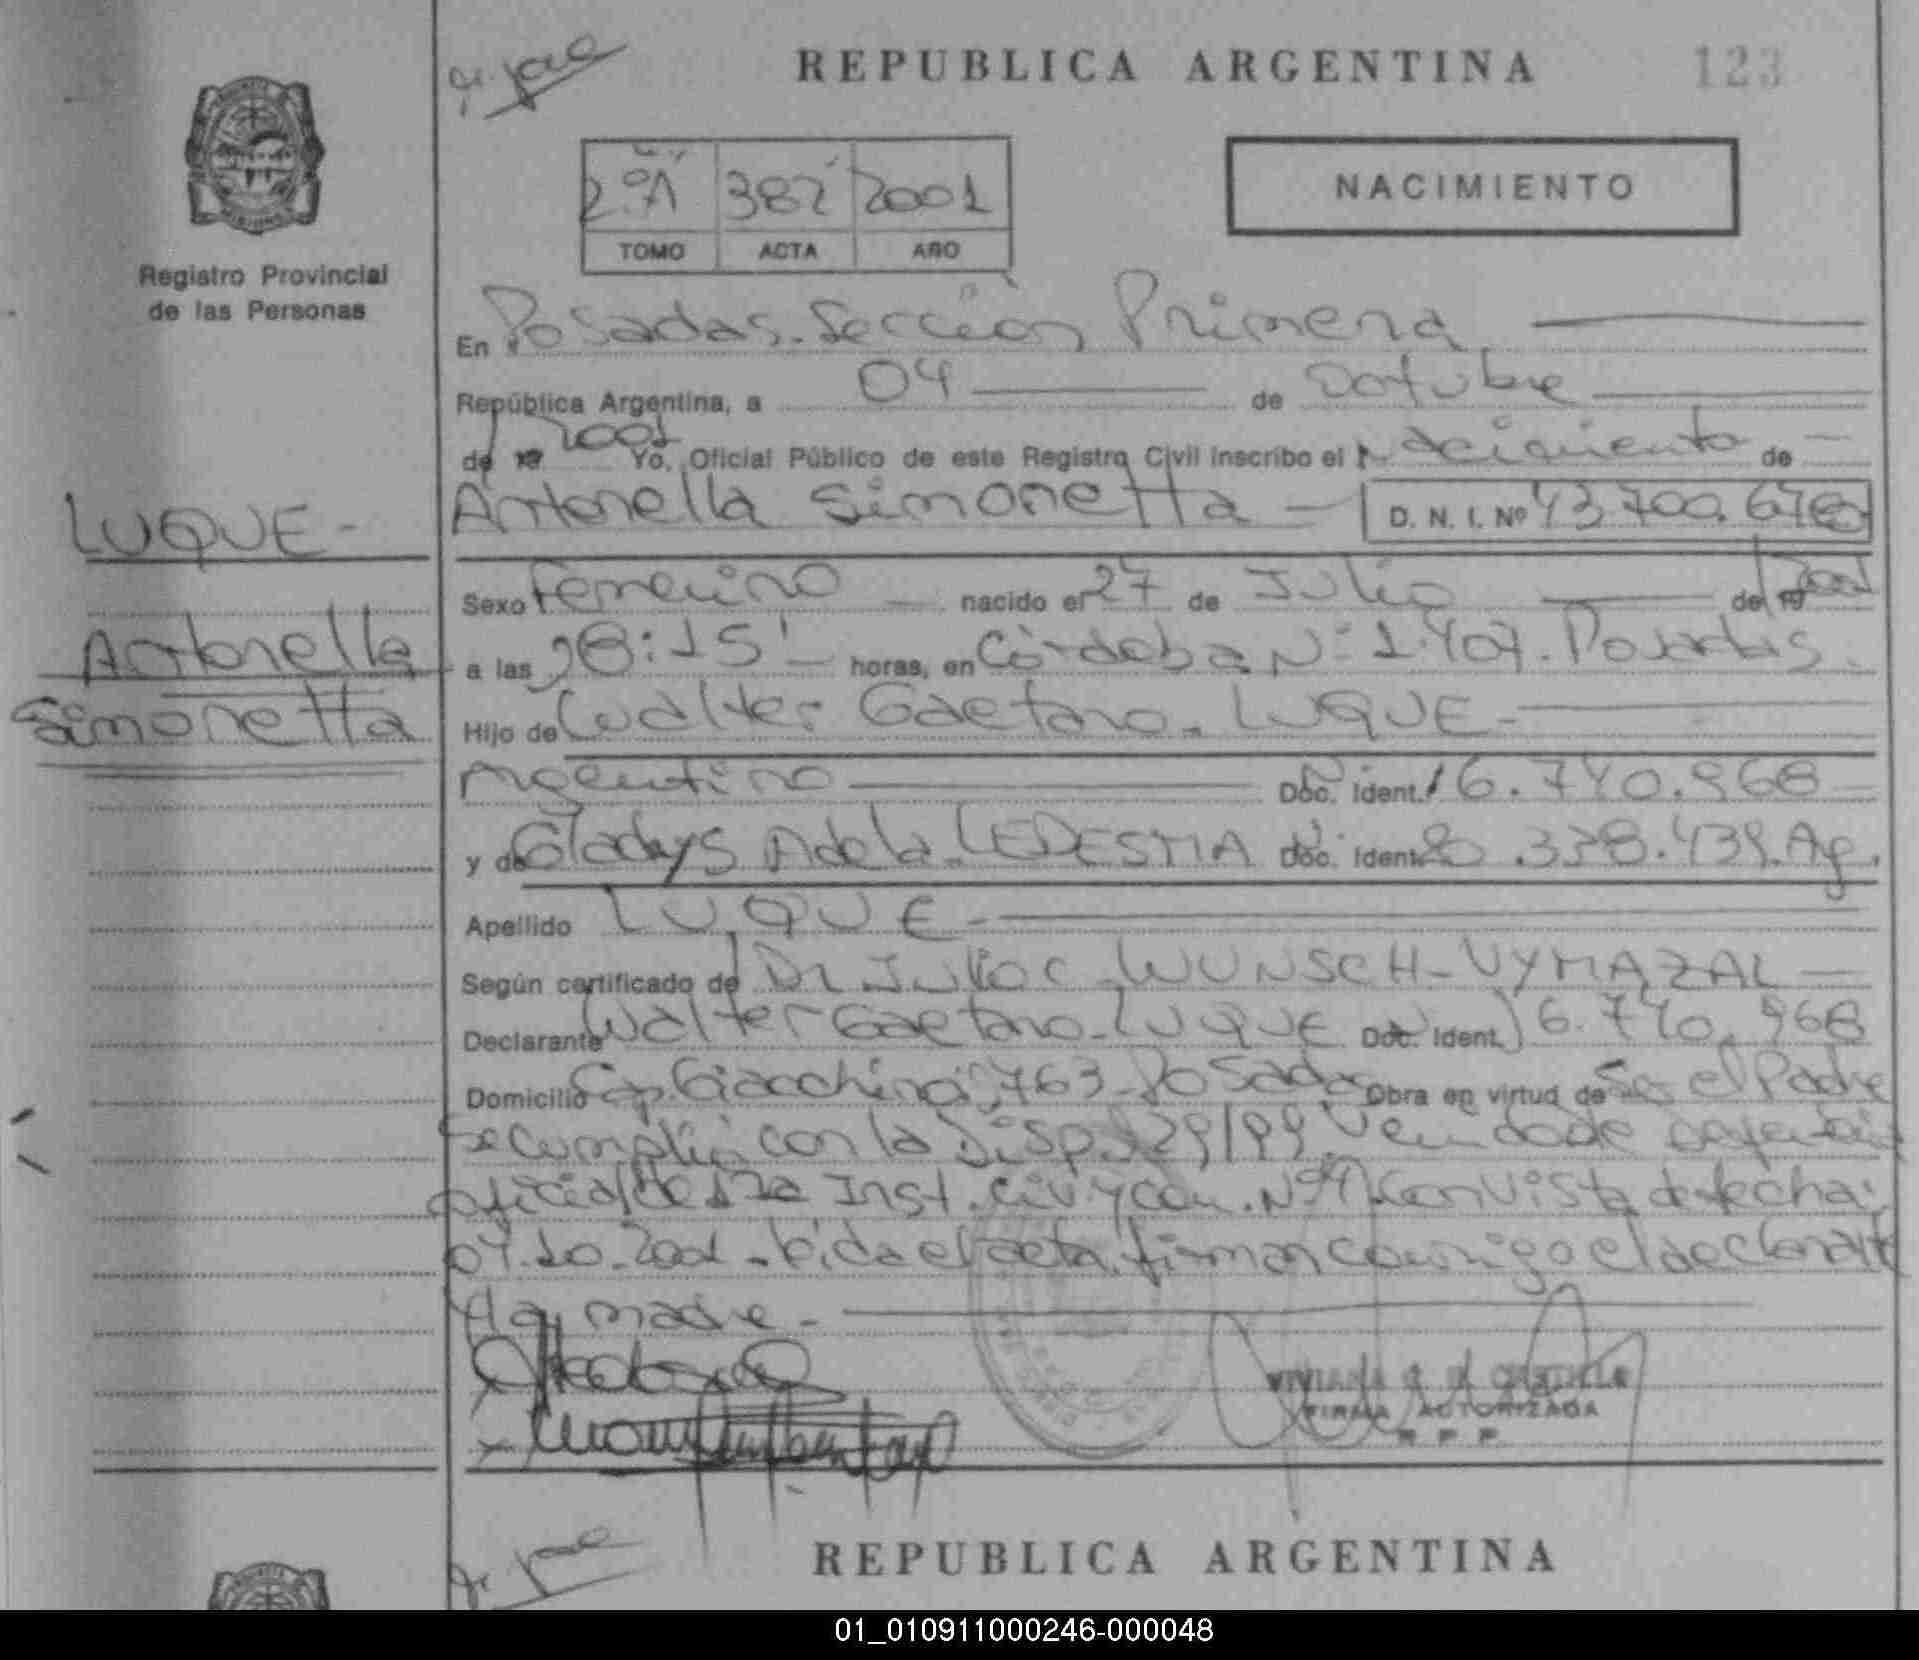 REPUBLICA ARGENTINA
123
2.ºA 382 2001
TOMO ACTA AÑO
NACIMIENTO
Registro Provincial
de las Personas
En Posadas. Sección Primera
República Argentina, a 04 de Octubre
de 19 2001 Yo, Oficial Público de este Registro Civil inscribo el nacimiento de
Antonella Simonetta D. N. I. Nº 43.700.676
LUQUE-
Antonella
Simonetta
Sexo Femenino nacido el 27 de Julio de 19 2001
a las 18:15' horas, en Córdoba Nº 1.407. Posadas.
Hijo de Walter Gaetano. LUQUE-
Argentino Doc. Ident. 16.740.968
y de Gladys Adela. LEDESMA Doc. Ident. 20.338.439. Ag.
Apellido LUQUE-
Según certificado de Dr Julio C. WUNSCH-VYMAZAL
Declarante Walter Gaetano. LUQUE Doc. Ident. 16.740.968
Domicilio Cap. Giacchino 763-Posadas Obra en virtud de Ser el Padre
Se cumplió con la Disp. 29/99.
oficial de 1ra Inst. Civ y Com. Nº 4 con vista de fecha:
04.10.2001 - Leída el acta, firman conmigo el declarante
y la madre.-
FIRMA AUTORIZADA
R P P
REPUBLICA ARGENTINA
01_010911000246-000048